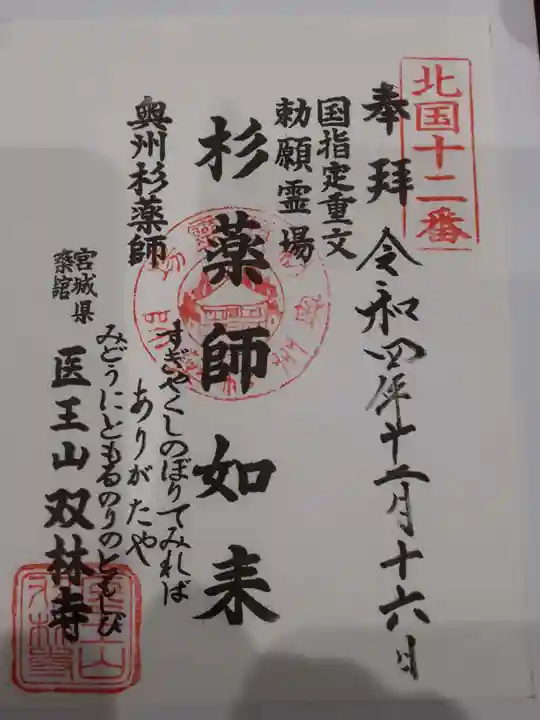 北国十二番
奉拝
令和四年十二月十六日
国指定重文
勅願霊場
杉薬師如来
奥州杉薬師
すぎやくしのぼりてみれば
ありがたや
みどうにともるのりのともしび
宮城県
築館
医王山双林寺